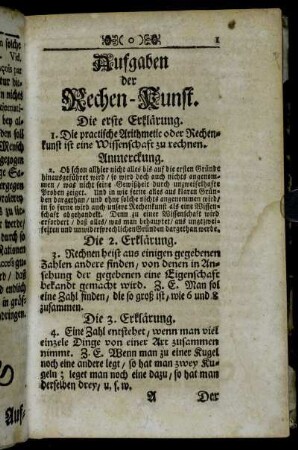 1
Aufgaben
der
Rechen-Kunst.
Die erste Erklärung.
1. Die practische Arithmetic oder Rechen-
kunst ist eine Wissenschaft zu rechnen.
Anmerckung.
2. Ob schon allhier nicht alles bis auf die ersten Gründe
hinausgeführet wird / so wird doch auch nichts angenom-
men / was nicht seine Gewißheit durch unzweifelhafte
Proben zeiget. Und in wie ferne alles aus klaren Grün-
den dargethan / und ohne solche nichts angenommen wird/
in so ferne wird auch unsere Rechen-Kunst als eine Wissen-
schaft abgehandelt. Denn zu einer Wissenschaft wird
erfordert / daß alles / was man behauptet / aus ungezwei-
felten und unwidersprechlichen Gründen dargethan werde.
Die 2. Erklärung.
3. Rechnen heist aus einigen gegebenen
Zahlen andere finden, von denen in An-
sehung der gegebenen eine Eigenschaft
bekandt gemacht wird. Z. E. Man sol
eine Zahl finden, die so groß ist, wie 6 und 8
zusammen.
Die 3. Erklärung.
4. Eine Zahl entstehet, wenn man viel
eintzele Dinge von einer Art zusammen
nimmt. Z. E. Wenn man zu einer Kugel
noch eine andere legt, so hat man zwey Ku-
geln; leget man noch eine dazu, so hat man
derselben drey, u. s. w.
A Der